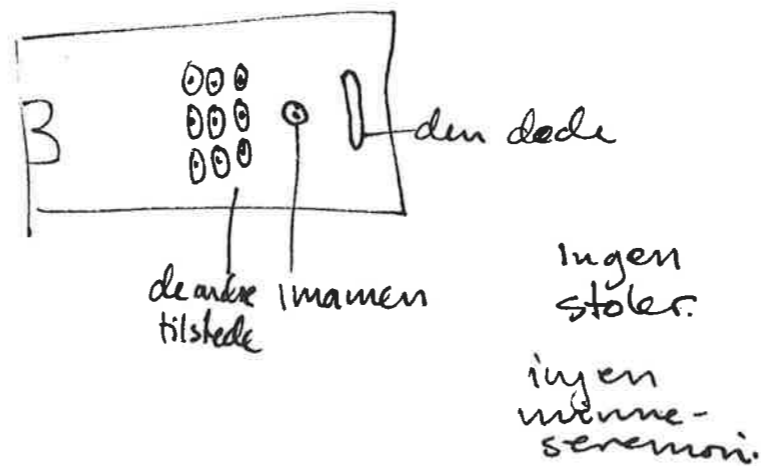 den døde
de andre
tilstede
imamen
Ingen
stoler.
ingen
minne-
seremoni.